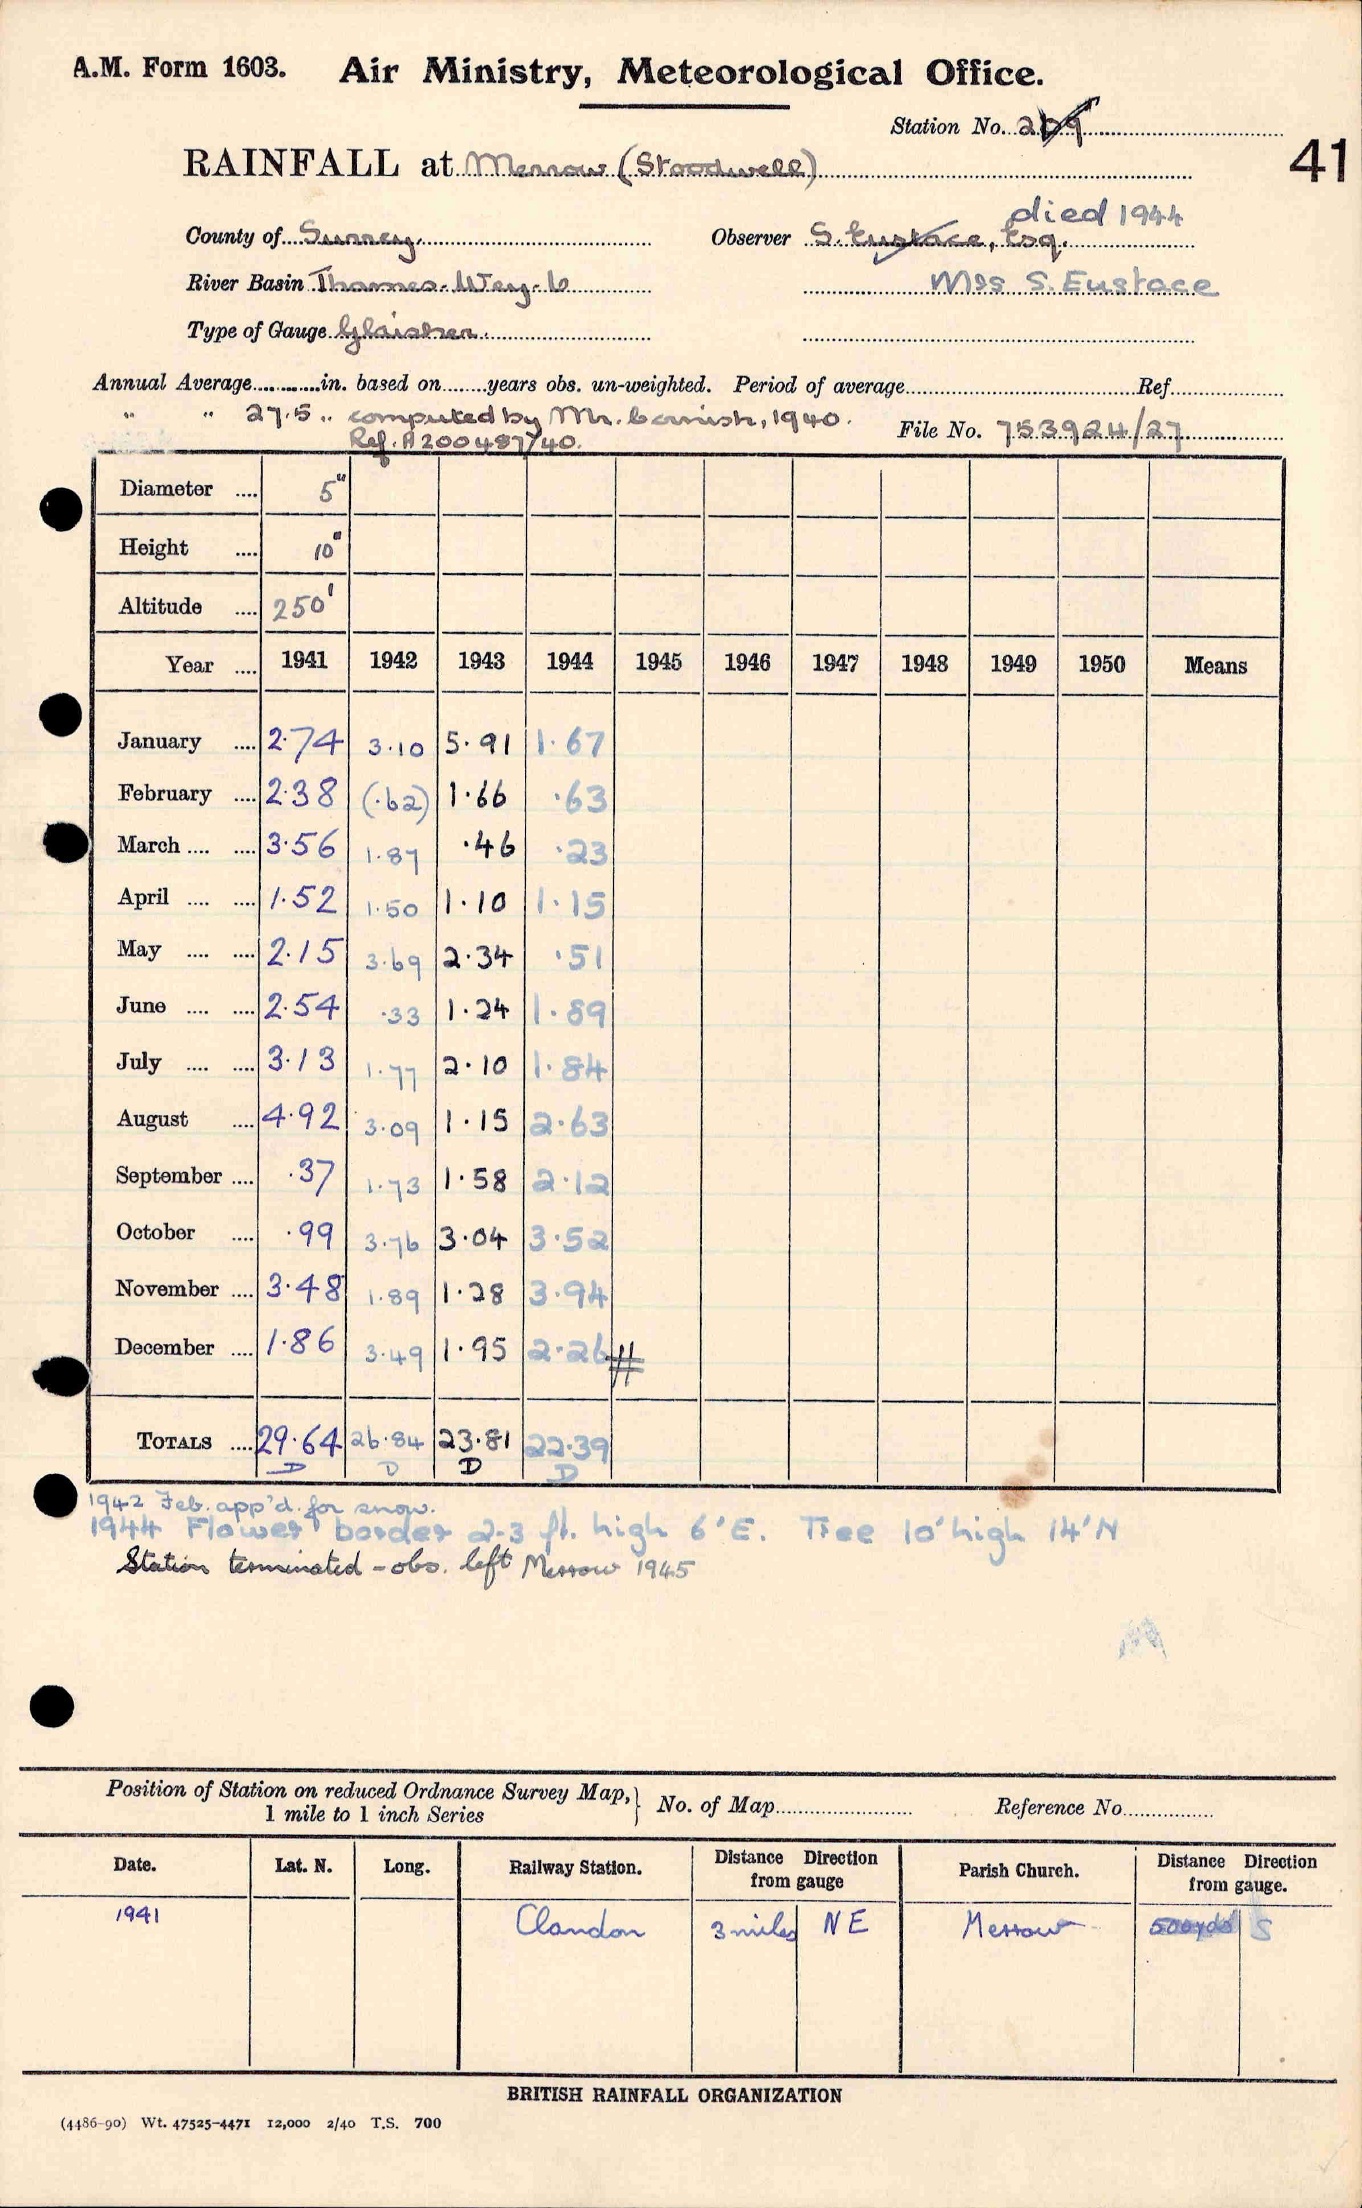 A.M. Form 1603. Air Ministry, Meteorological Office.
Station No. 269
41
RAINFALL at Merrow (Stoodwell)
died 1944
County of Surrey. Observer S. Eustace, Esq.
River Basin Thames-Wey-6 Mrs S. Eustace
Type of Gauge Glaisher.
Annual Average..........in. based on.......years obs. un-weighted. Period of average..........Ref..........
" " 27.5 .. computed by Mr. Cornish, 1940.
Ref. A200487/40. File No. 753924/27
Diameter .... 5"
Height .... 10"
Altitude .... 250'
Year .... 1941 1942 1943 1944 1945 1946 1947 1948 1949 1950 Means
January .... 2.74 3.10 5.91 1.67
February .... 2.38 (.62) 1.66 .63
March .... .... 3.56 1.87 .46 .23
April .... .... 1.52 1.50 1.10 1.15
May .... .... 2.15 3.69 2.34 .51
June .... .... 2.54 .33 1.24 1.89
July .... .... 3.13 1.77 2.10 1.84
August .... 4.92 3.09 1.15 2.63
September .... .37 1.73 1.58 2.12
October .... .99 3.76 3.04 3.52
November .... 3.48 1.89 1.28 3.94
December .... 1.86 3.49 1.95 2.26
TOTALS .... 29.64 26.84 23.81 22.39
D D D D
1942 Feb. app'd. for snow.
1944 Flower border 2-3 ft. high 6'E. Tree 10' high 14'N
Station terminated - obs. left Merrow 1945
Position of Station on reduced Ordnance Survey Map, 1 mile to 1 inch Series } No. of Map.......... Reference No..........
Date. Lat. N. Long. Railway Station. Distance Direction from gauge Parish Church. Distance Direction from gauge.
1941 Clandon 3 miles NE Merrow 500yds S
BRITISH RAINFALL ORGANIZATION
(4486-90) Wt. 47525-4471 12,000 2/40 T.S. 700